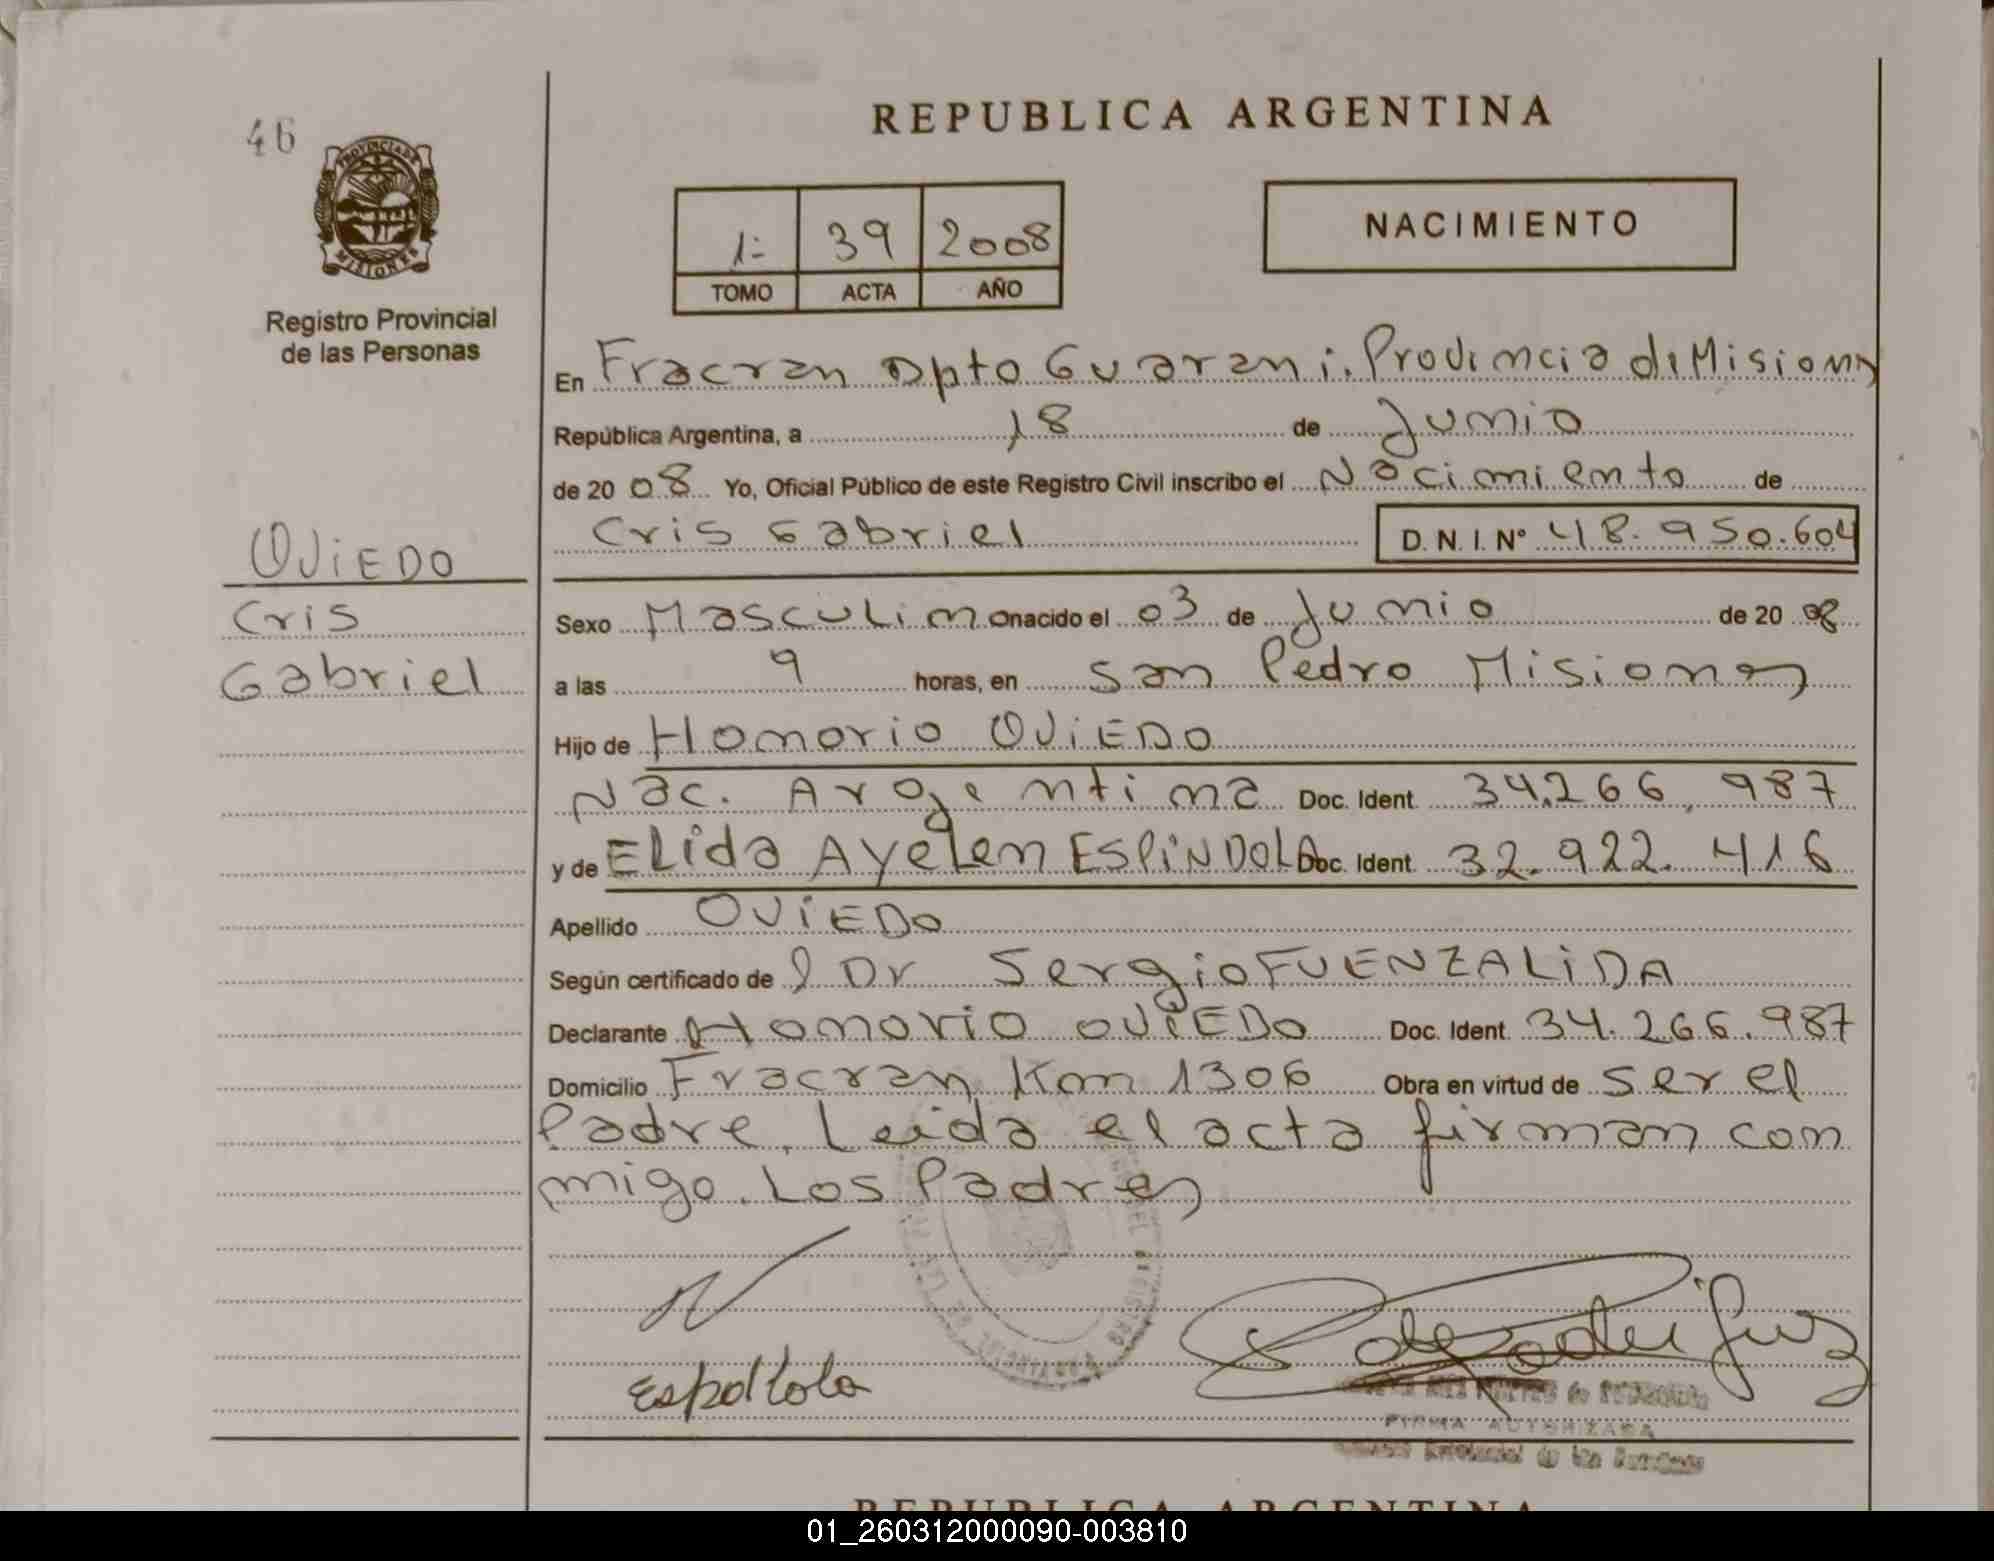 46
PROVINCIA DE
MISIONES
Registro Provincial
de las Personas
REPUBLICA ARGENTINA
1= 39 2008
TOMO ACTA AÑO
NACIMIENTO
En Fracran Dpto Guarani. Provincia de Misiones
República Argentina, a 18 de Junio
de 20 08 Yo, Oficial Público de este Registro Civil inscribo el Nacimiento de
Cris Gabriel D. N. I. Nº 48.950.604
OVIEDO
Cris
Gabriel
Sexo Masculino nacido el 03 de Junio de 20 08
a las 9 horas, en San Pedro Misiones
Hijo de Honorio OVIEDO
Nac. Argentina Doc. Ident. 34.266.987
y de ELida Ayelen ESPINDOLA Doc. Ident. 32.922.416
Apellido OVIEDO
Según certificado de l Dr Sergio FUENZALIDA
Declarante Honorio OVIEDO Doc. Ident. 34.266.987
Domicilio Fracran Km 1306 Obra en virtud de ser el
Padre. Leida el acta firman con
migo. Los Padres
FIRMA AUTORIZADA
REPUBLICA ARGENTINA
01_260312000090-003810